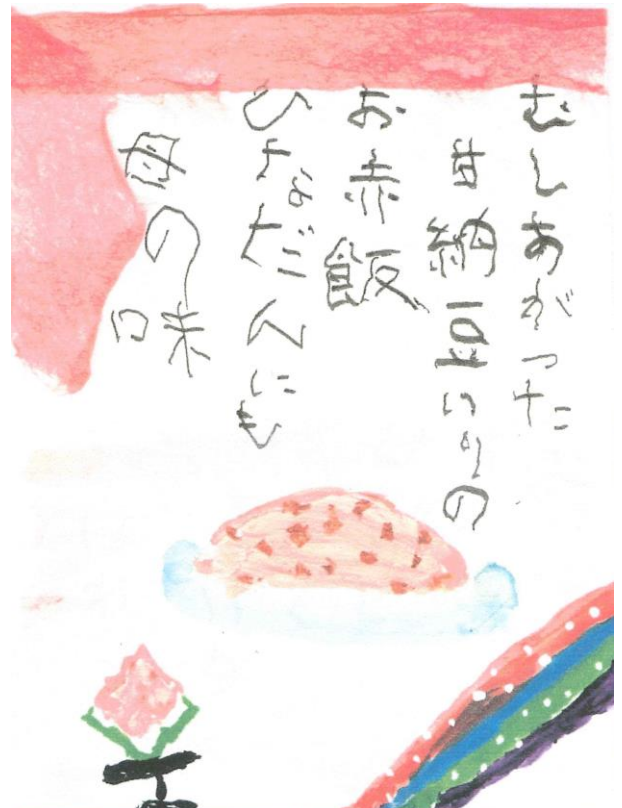 むしあがった
甘納豆いりの
お赤飯
ひなだんにも
母の味